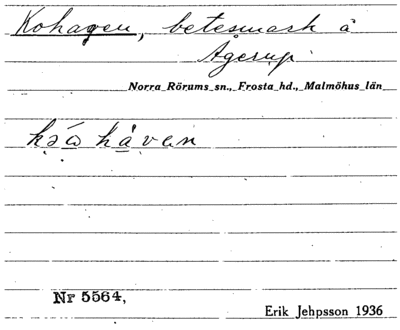 Kohagen, betesmark å
Agerup
Norra Rörums sn., Frosta hd., Malmöhus län
Nr 5564,
Erik Jehpsson 1936